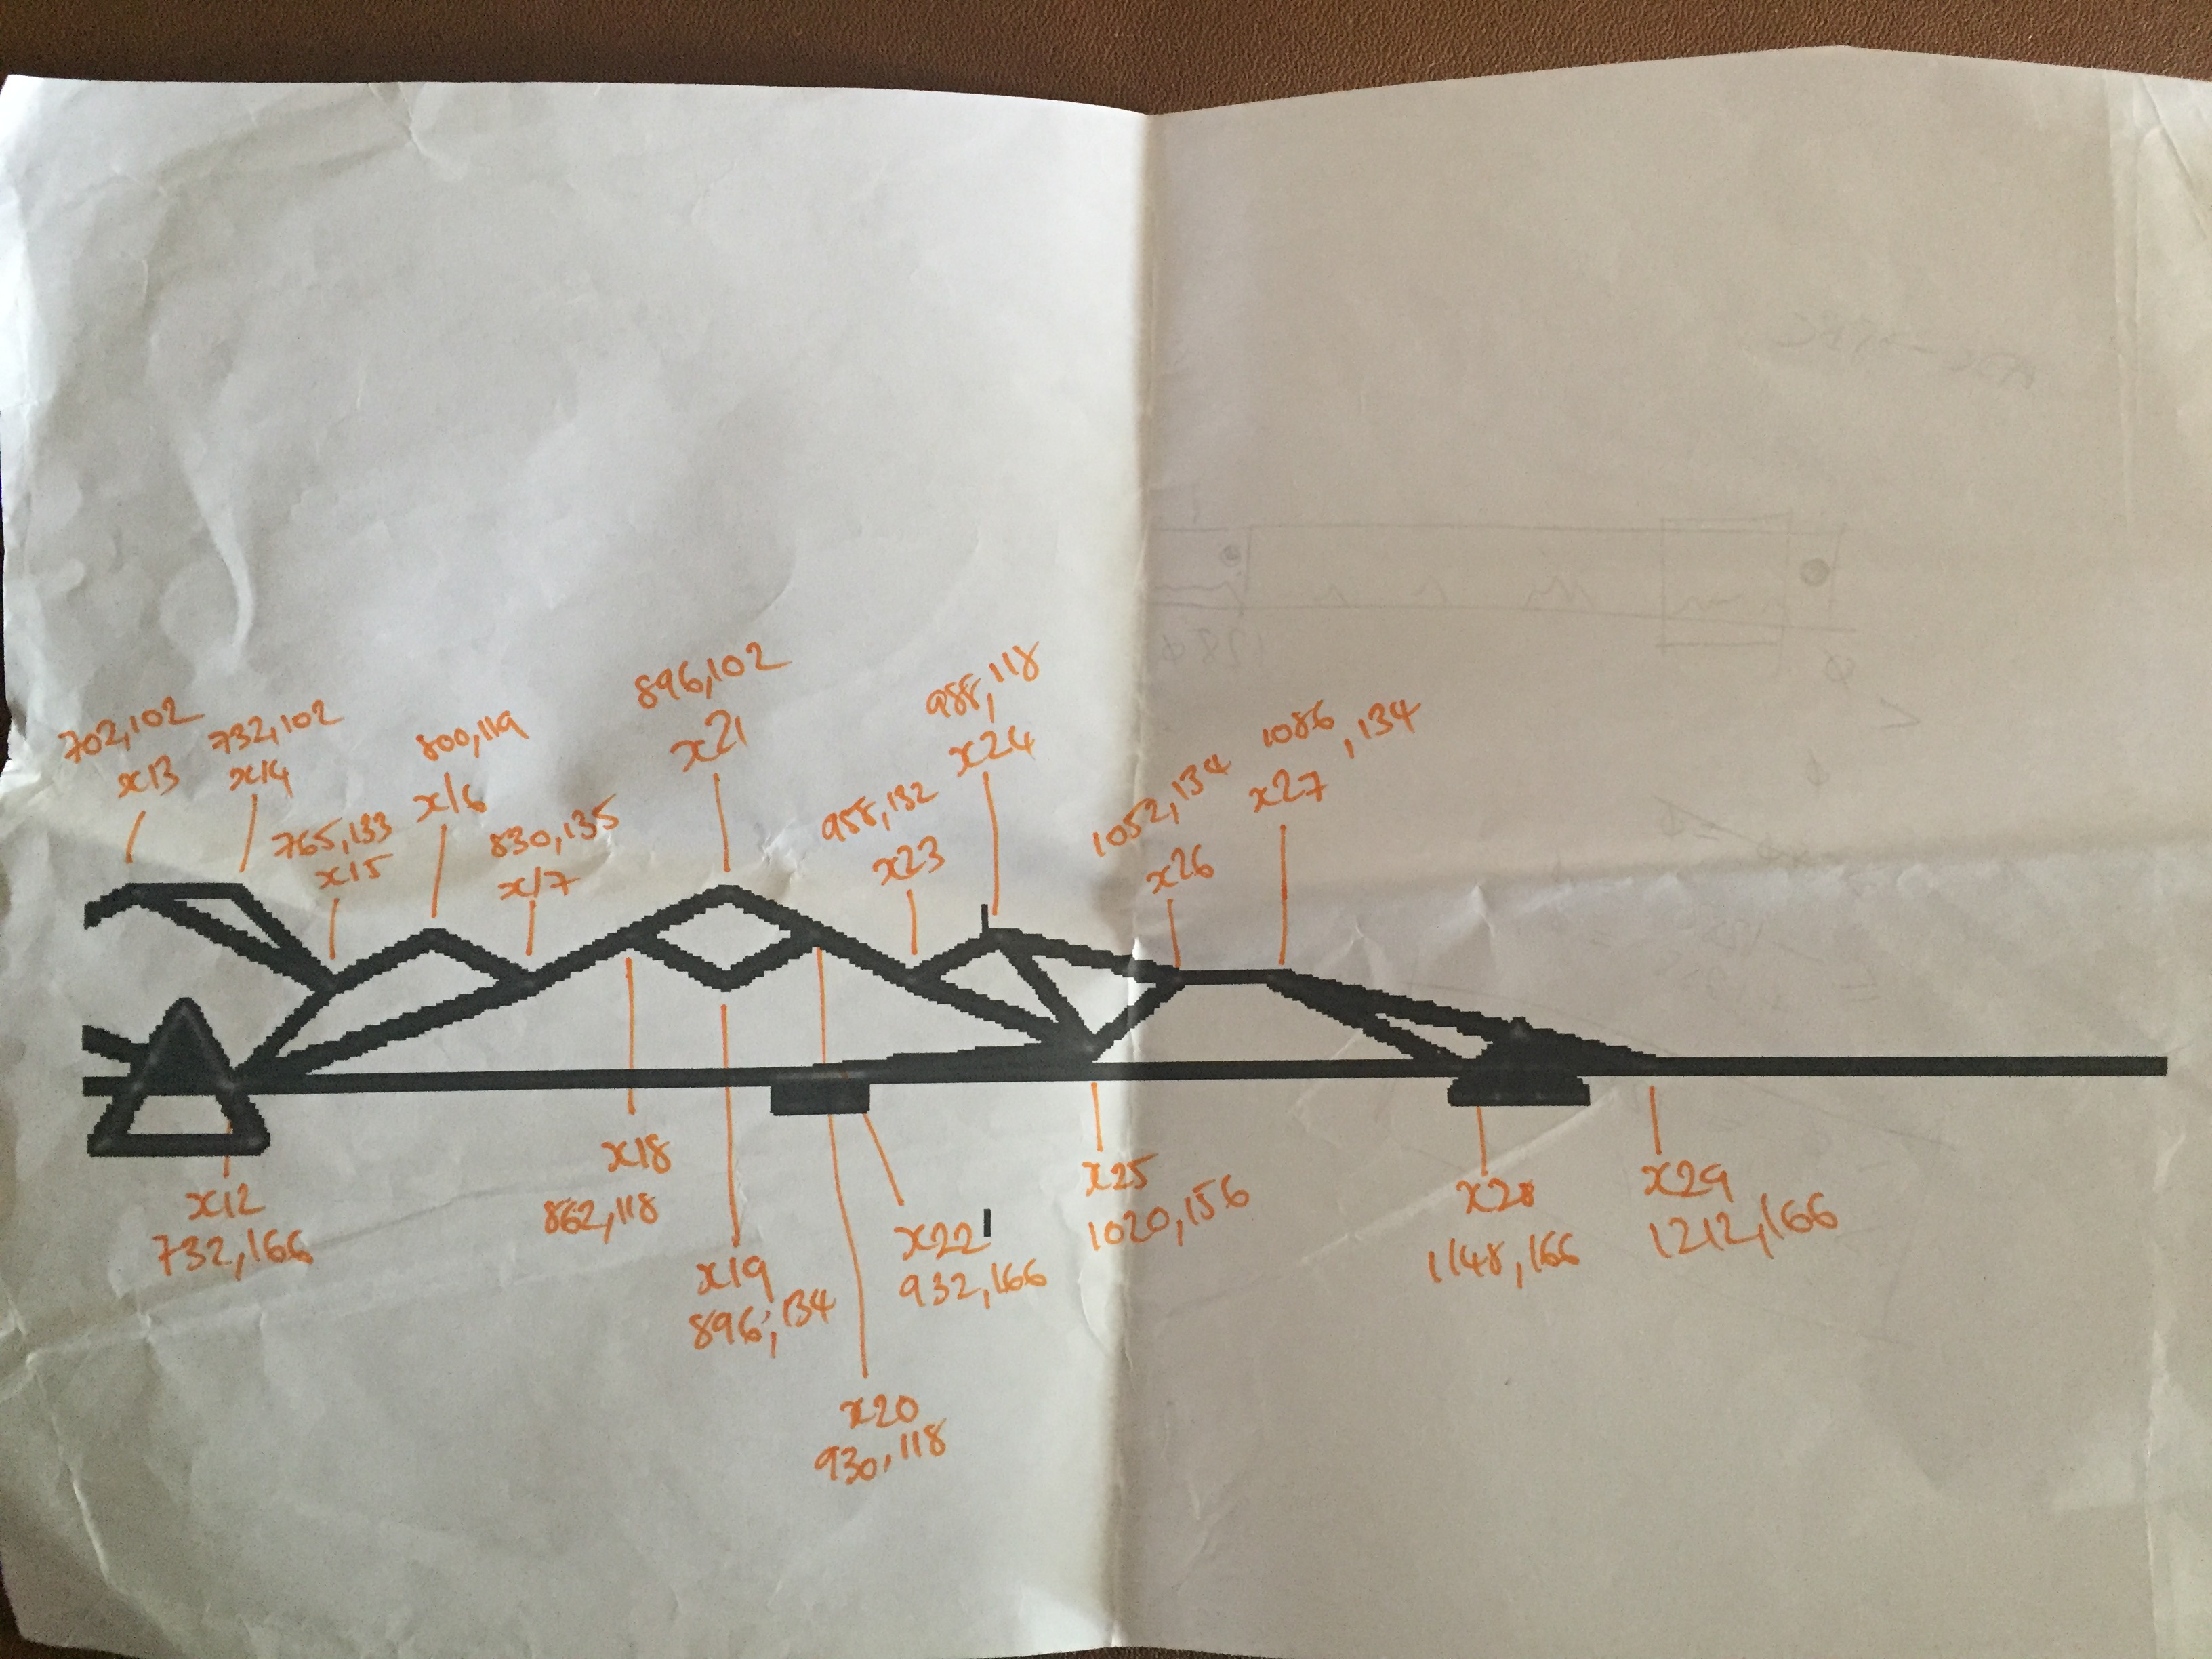 702,102
x13
732,102
x14
765,133
x15
800,119
x16
830,135
x17
896,102
x21
958,132
x23
988,118
x24
1052,134
x26
1086,134
x27
x12
732,166
x18
862,118
x19
896,134
x20
930,118
x22
932,166
x25
1020,156
x28
1148,166
x29
1212,166